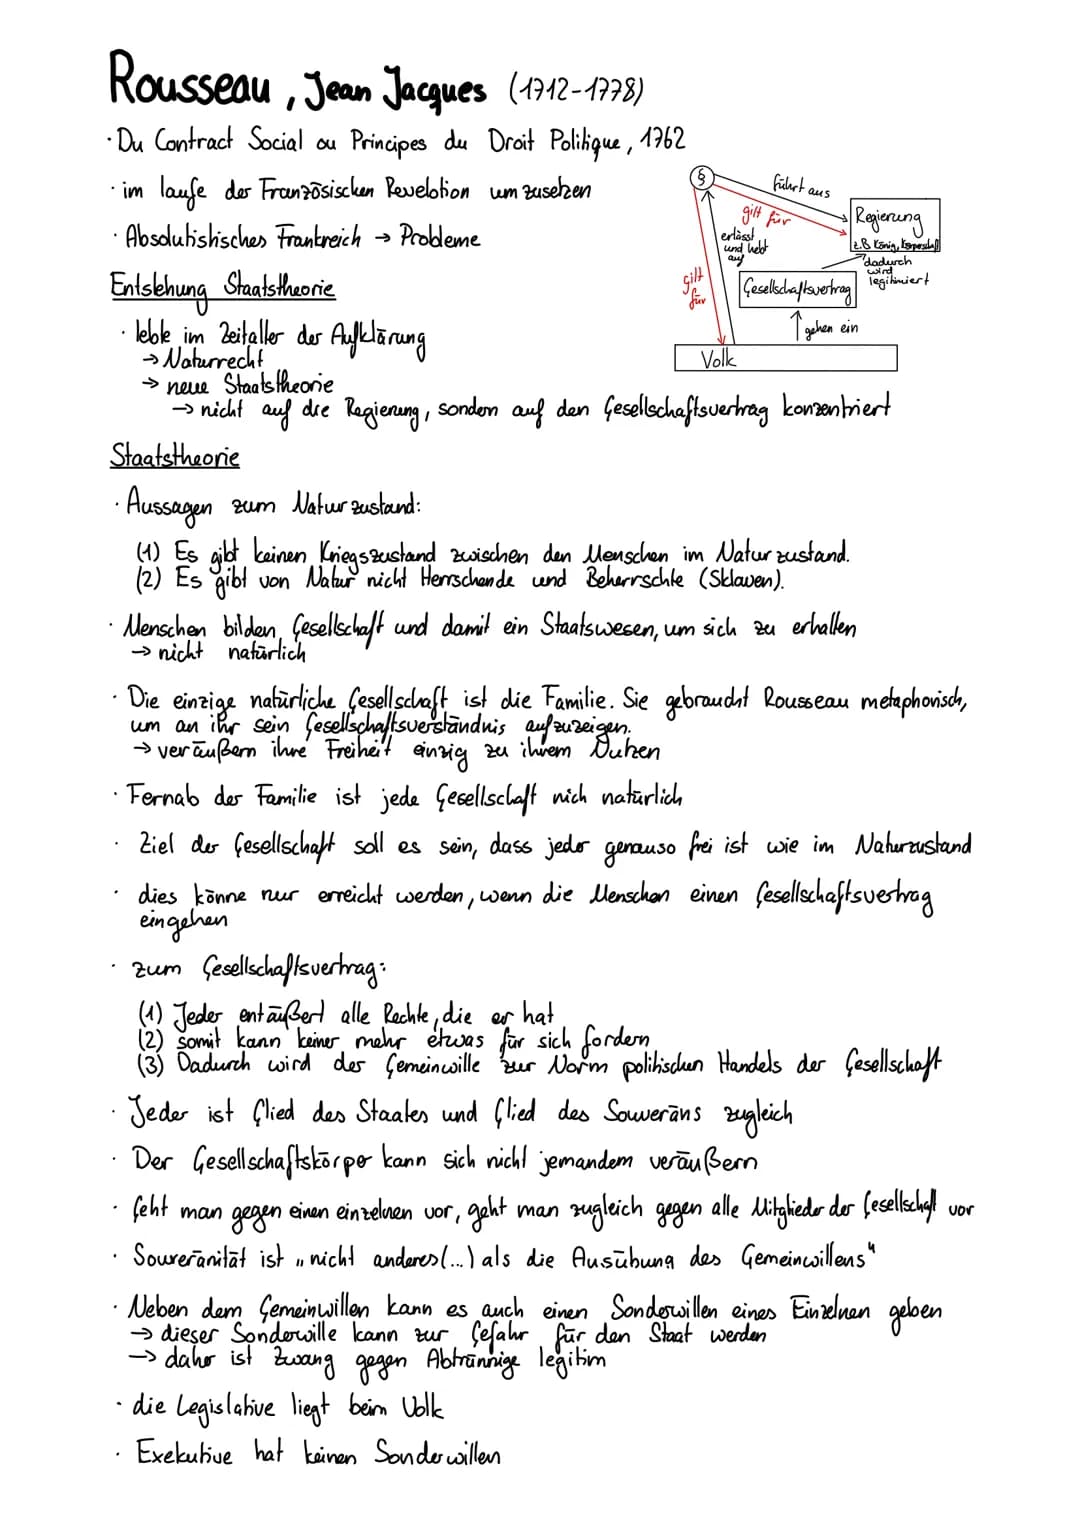 Rousseau, Jean Jacques (1712-1778)
· Du Contract Social ou Principes du Droit Politique, 1762
· im laufe der Französischen Revelotion umzusetzen
· Absolutistisches Frankreich → Probleme
§
führt aus
gilt für
Regierung
z.B König, Körperschaft
erlässt
und hebt
auf
dadurch
wird
legitimiert
gilt
für
Gesellschaftsvertrag
gehen ein
Volk
Entstehung Staatstheorie
· lebte im Zeitalter der Aufklärung
→ Naturrecht
→ neue Staatstheorie
→ nicht auf die Regierung, sondern auf den Gesellschaftsvertrag konzentriert
Staatstheorie
· Aussagen zum Naturzustand:
(1) Es gibt keinen Kriegszustand zwischen den Menschen im Naturzustand.
(2) Es gibt von Natur nicht Herrschende und Beherrschte (Sklaven).
· Menschen bilden Gesellschaft und damit ein Staatswesen, um sich zu erhalten
→ nicht natürlich
· Die einzige natürliche Gesellschaft ist die Familie. Sie gebraucht Rousseau metaphorisch,
um an ihr sein Gesellschaftsverständnis aufzuzeigen.
→ veräußern ihre Freiheit einzig zu ihrem Nutzen
· Fernab der Familie ist jede Gesellschaft nich natürlich
· Ziel der Gesellschaft soll es sein, dass jeder genauso frei ist wie im Naturzustand
· dies könne nur erreicht werden, wenn die Menschen einen Gesellschaftsvertrag
eingehen
· zum Gesellschaftsvertrag:
(1) Jeder entäußert alle Rechte, die er hat
(2) somit kann keiner mehr etwas für sich fordern
(3) Dadurch wird der Gemeinwille zur Norm politischen Handels der Gesellschaft
· Jeder ist Glied des Staates und Glied des Souveräns zugleich
· Der Gesellschaftskörper kann sich nicht jemandem veräußern
· Geht man gegen einen einzelnen vor, geht man zugleich gegen alle Mitglieder der Gesellschaft vor
· Souveränität ist „nicht anderes (...) als die Ausübung des Gemeinwillens"
· Neben dem Gemeinwillen kann es auch einen Sonderwillen eines Einzelnen geben
→ dieser Sonderwille kann zur Gefahr für den Staat werden
→ daher ist Zwang gegen Abtrünnige legitim
· die Legislative liegt beim Volk
· Exekutive hat keinen Sonderwillen